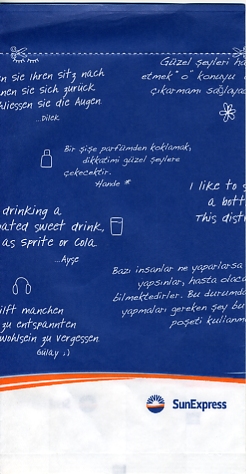 n sie Ihren sitz nach
nen sie sich zurück
hliessen sie die Augen.
...Dilek
Güzel şeyleri ha
etmek "o" konuyu
çıkarmamı sağlaya
Bir şişe parfümden koklamak,
dikkatimi güzel şeylere
çekecektir.
Hande *
I like to s
a bott
This dist
drinking a
ated sweet drink,
as sprite or Cola.
...Ayşe
Bazı insanlar ne yaparlarsa
yapsınlar, hasta olaca
bilmektedirler. Bu durumda
yapmaları gereken şey bu
poşeti kullanm
ilft manchen
zu entspannten
wohlsein zu vergessen.
Gülay ;)
SunExpress